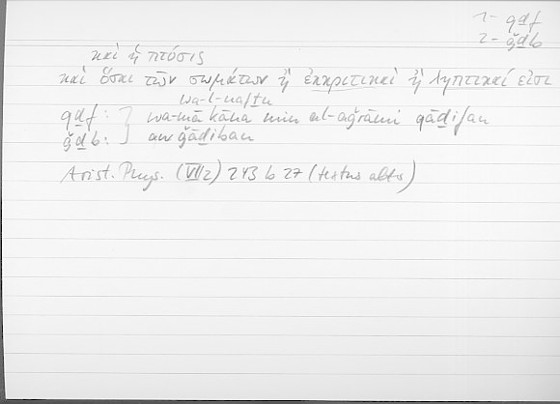 1- qḏf
2- ǧḏb
καὶ ἡ πτύσις
καὶ ὅσαι τῶν σωμάτων ἢ ἐκκριτικαὶ ἢ ληπτικαί εἰσι
wa-l-nafṯu
qḏf: wa-mā kāna min al-aǧrāmi qāḏifan
ǧḏb: aw ǧāḏiban
Arist. Phys. (VII 2) 243 b 27 (textus alter)